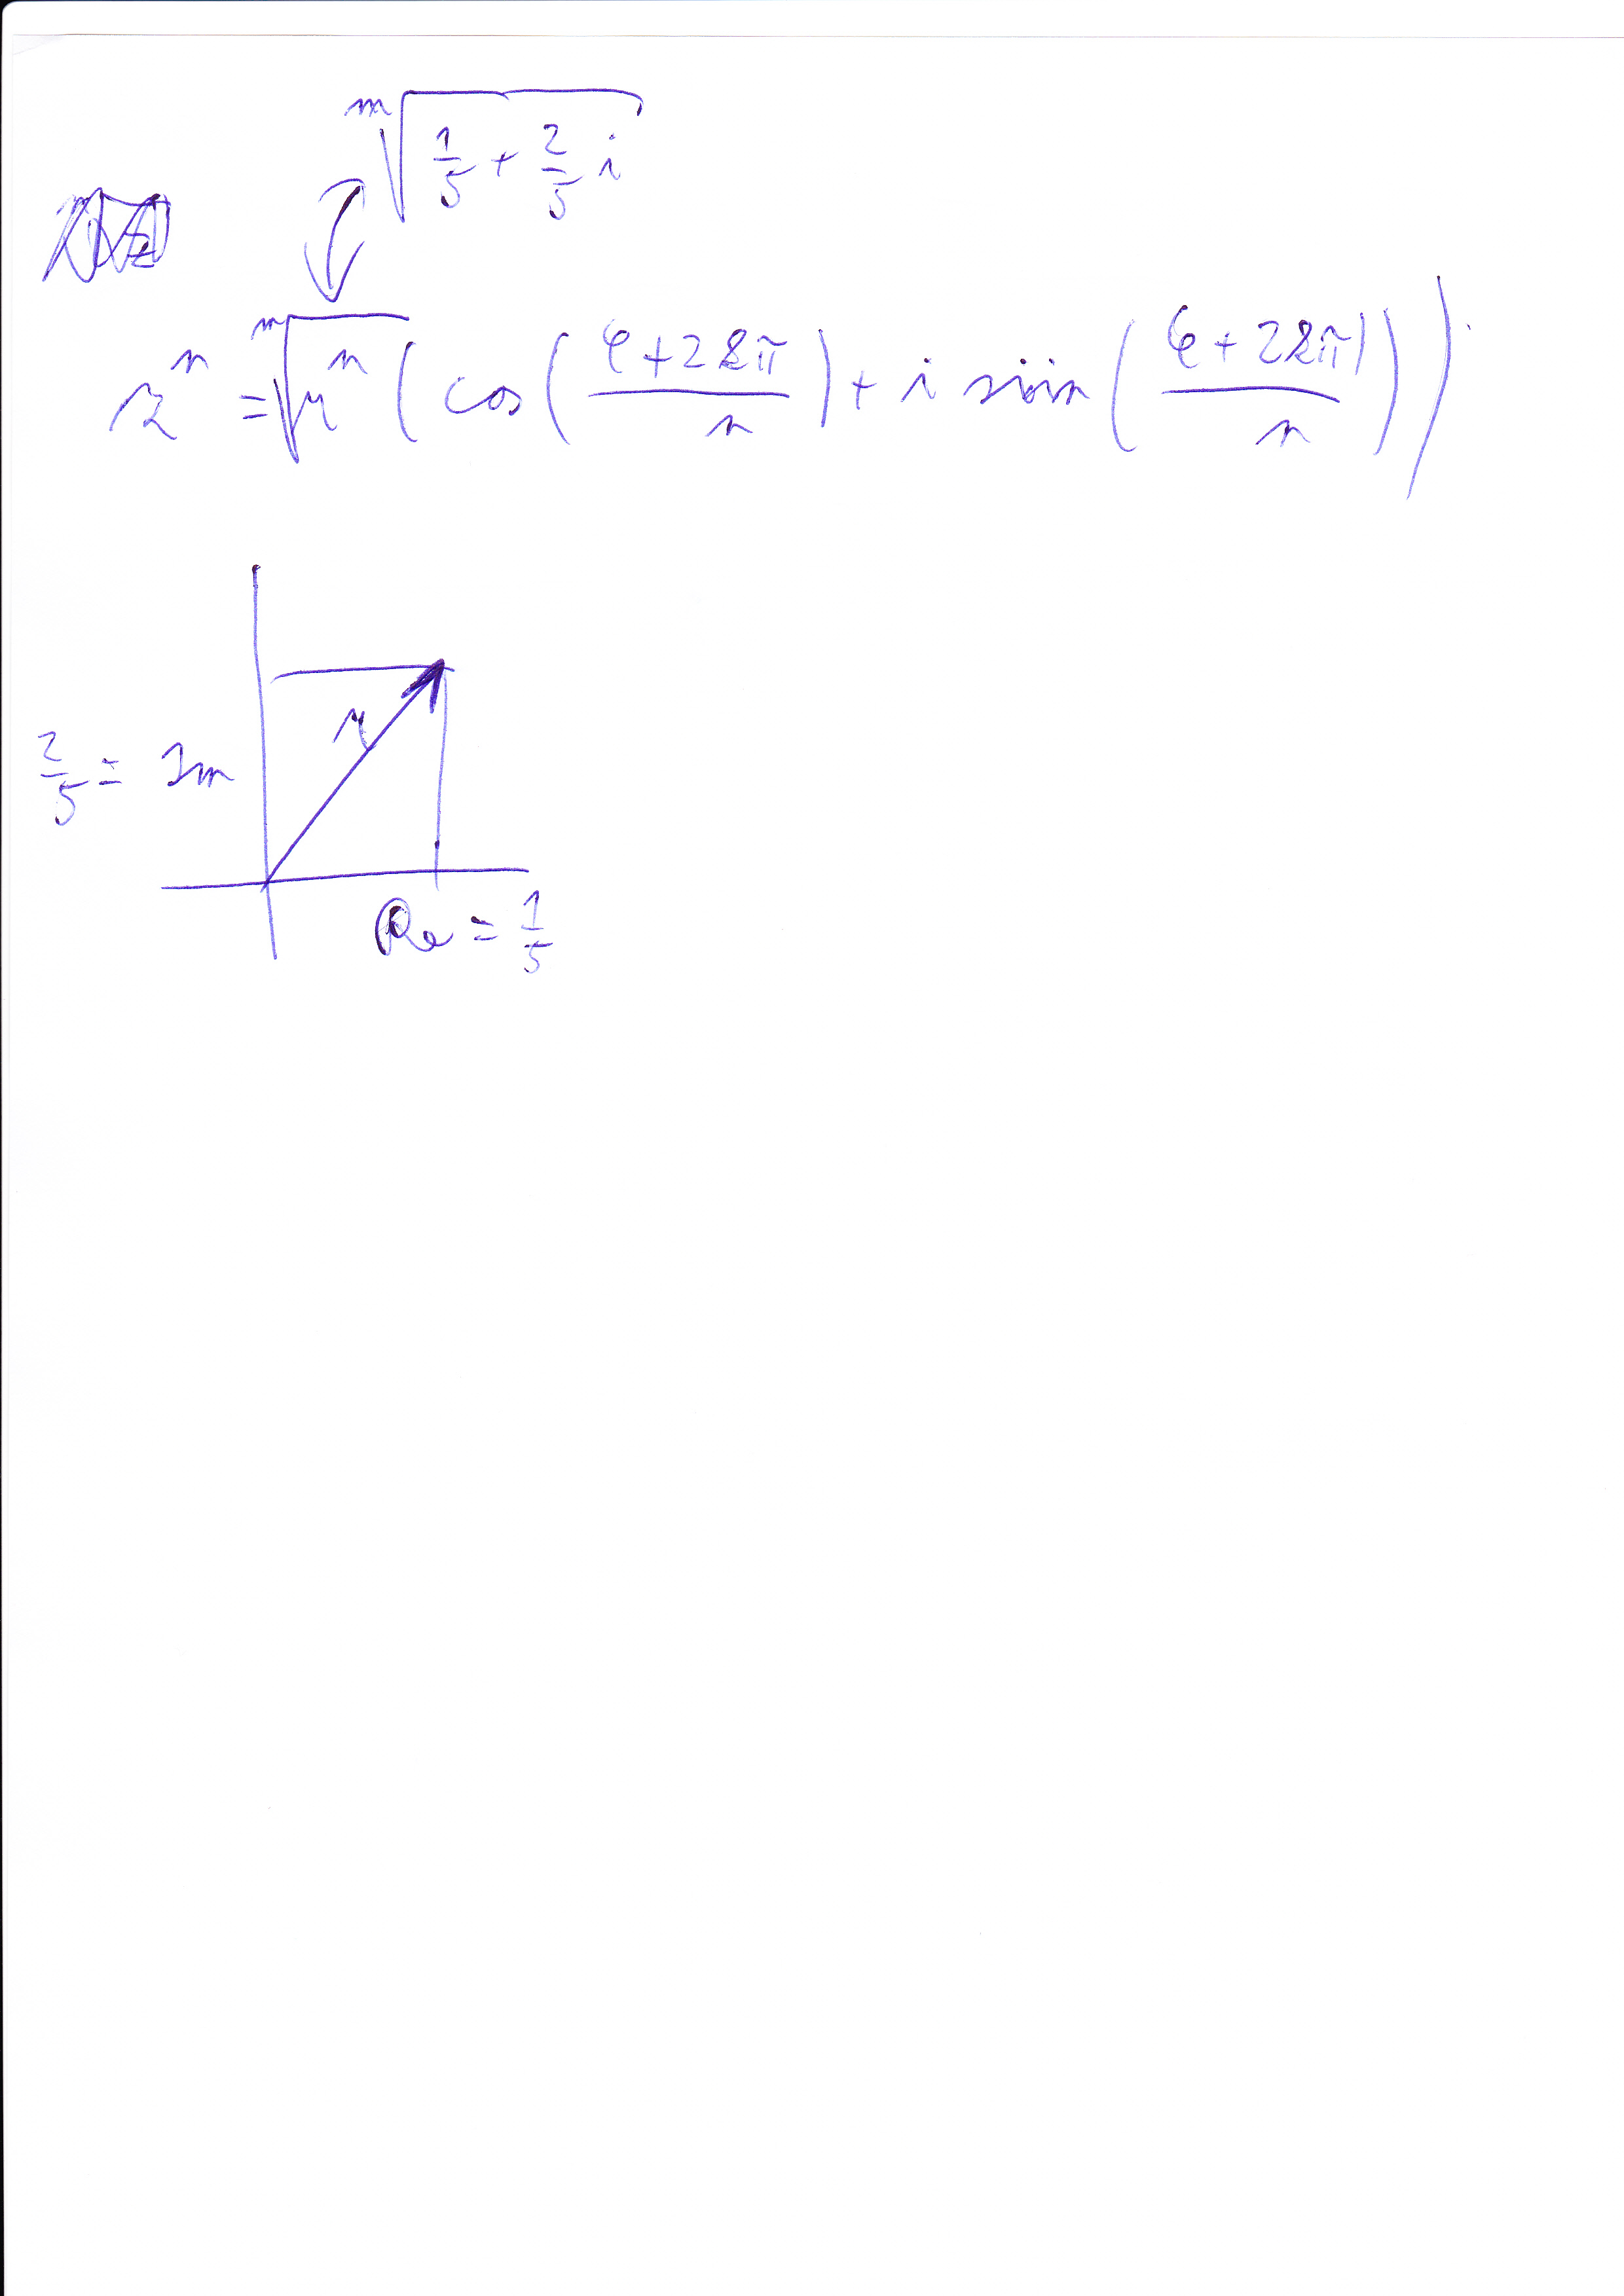 ⁿ√(1/5 + 2/5 i)
zⁿ = ⁿ√rⁿ (cos((φ+2kπ)/n) + i sin((φ+2kπ)/n))
r
2/5 = Im
Re = 1/5